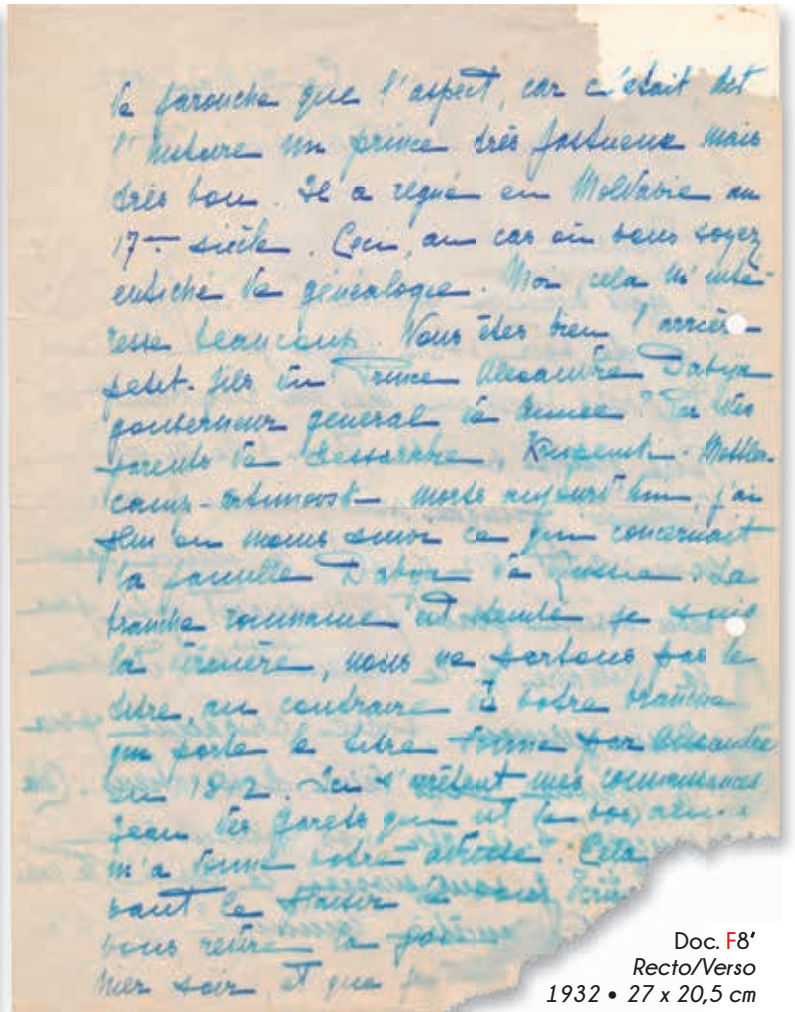 de farouche que l'aspect, car c'était dit
l'histoire un prince très fastueux mais
très bon. Il a régné en Moldavie au
17me siècle. Ceci, au cas où vous soyez
entiché de généalogie. Moi, cela m'inté-
resse beaucoup. Vous êtes bien l'arrière-
petit-fils du Prince Alexandre Dabija
gouverneur général de Crimée? Par des
parents de Bessarabie,
morts aujourd'hui, j'ai
plus ou moins ce qui concernait
la famille Dabija de Russie. La
branche roumaine est éteinte je suis
la dernière, nous ne portons pas le
titre, au contraire de votre branche
qui porte le titre donné par Alexandre
en 1812. Ici s'arrêtent mes connaissances
Jean des Garets qui est
m'a donné votre adresse. Cela
vaut le plaisir
vous relire la
hier soir, et que
Doc. F8'
Recto/Verso
1932 • 27 x 20,5 cm